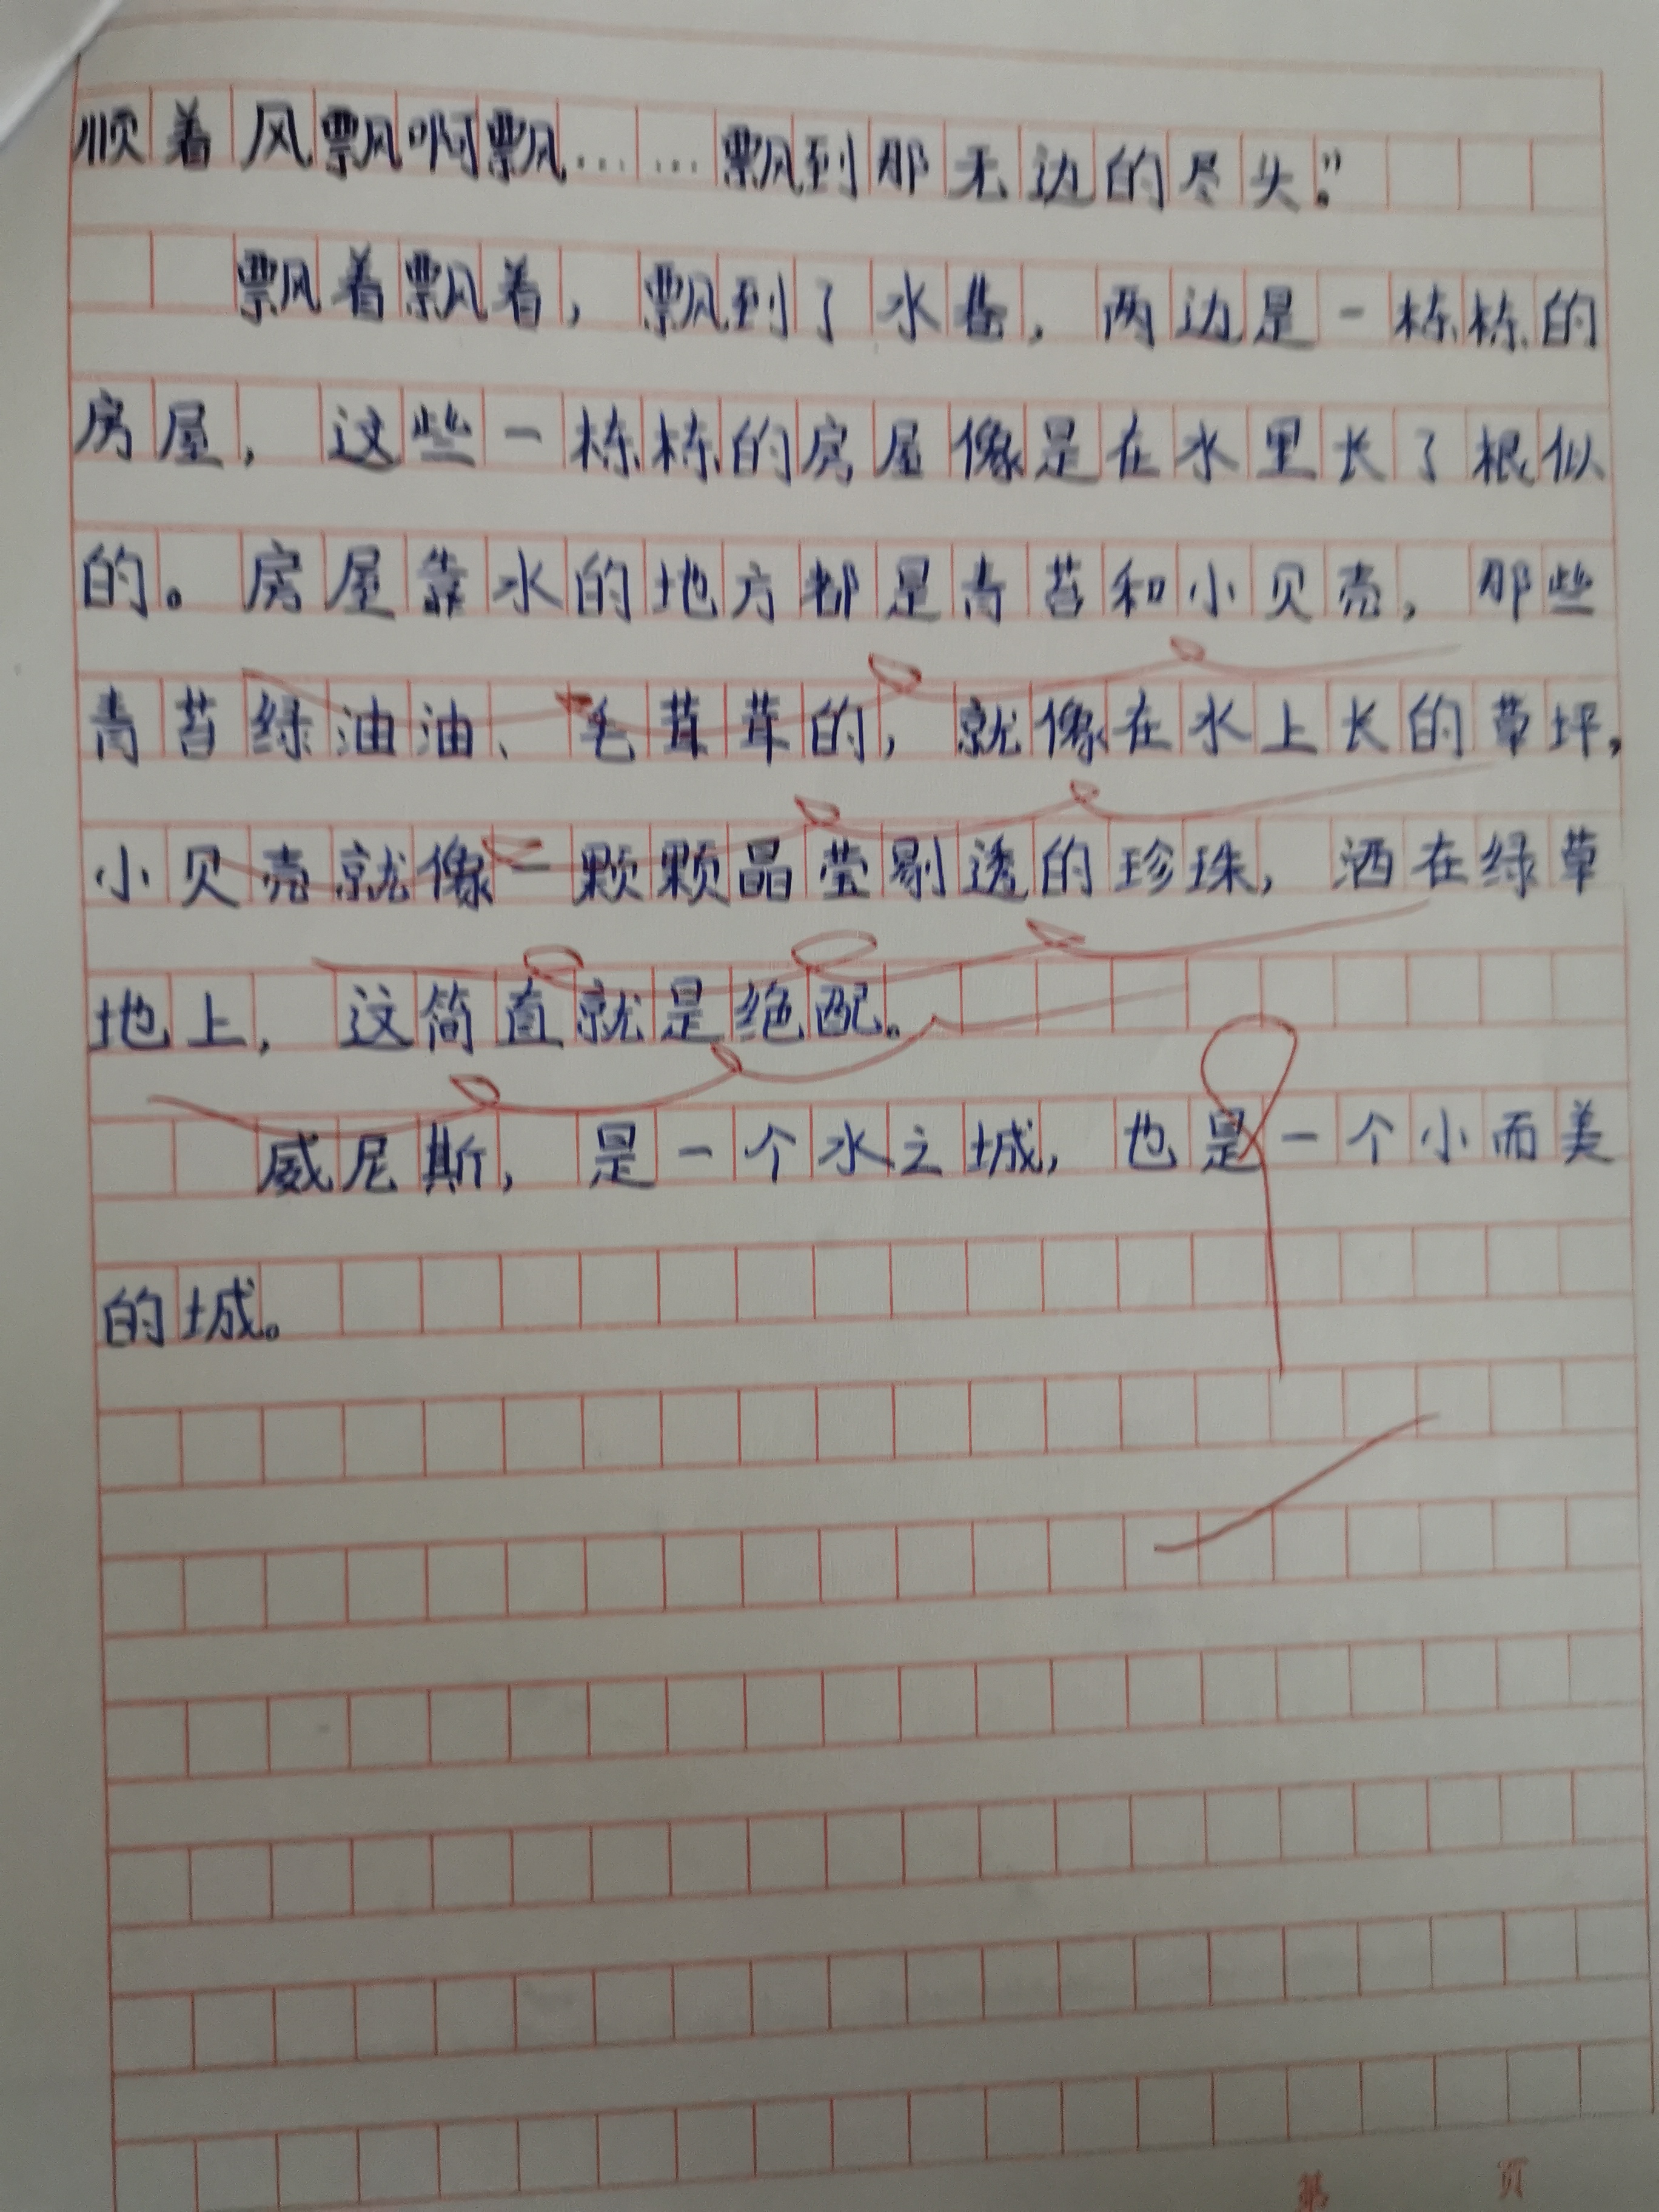 顺着风飘啊飘……飘到那无边的尽头。”
飘着飘着，飘到了水巷，两边是一栋栋的
房屋，这些一栋栋的房屋像是在水里长了根似
的。房屋靠水的地方都是青苔和小贝壳，那些
青苔绿油油、毛茸茸的，就像在水上长的草坪，
小贝壳就像一颗颗晶莹剔透的珍珠，洒在绿草
地上，这简直就是绝配。
威尼斯，是一个水之城，也是一个小而美
的城。
第 页